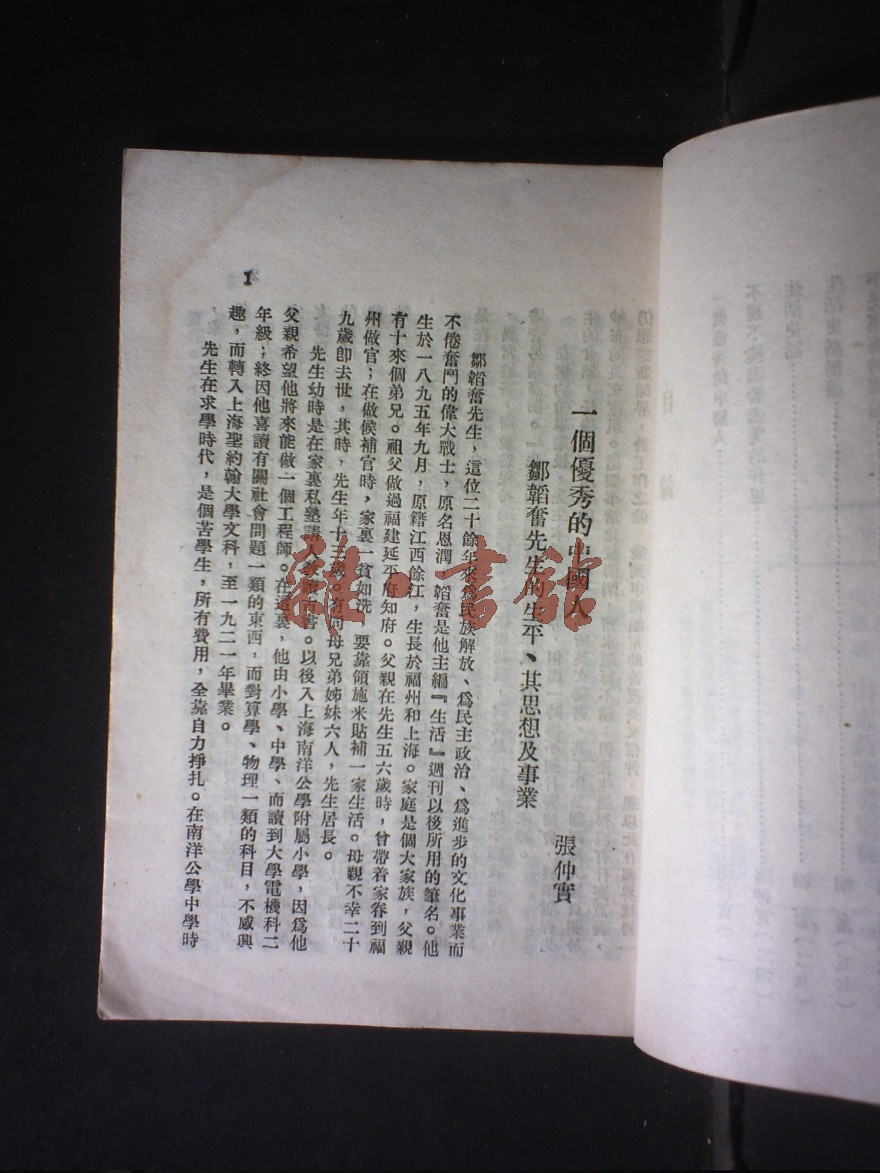 一個優秀的中國人
鄒韜奮先生的生平、其思想及事業
張仲實
鄒韜奮先生，這位二十餘年來爲民族解放、爲民主政治、爲進步的文化事業而
不倦奮鬥的偉大戰士，原名恩潤，韜奮是他主編『生活』週刊以後所用的筆名。他
生於一八九五年九月，原籍江西餘江，生長於福州和上海。家庭是個大家族，父親
有十來個弟兄。祖父做過福建延平府知府。父親在先生五六歲時，曾帶着家眷到福
州做官；在做候補官時，家裏一貧如洗　要靠領施米貼補一家生活。母親不幸二十
九歲卽去世，其時，先生年十三歲。有同母兄弟姊妹六人，先生居長。
先生幼時是在家裏私塾請人教讀古書。以後入上海南洋公學附屬小學，因爲他
父親希望他將來能做一個工程師。在這裏，他由小學、中學、而讀到大學電機科二
年級；終因他喜讀有關社會問題一類的東西，而對算學、物理一類的科目，不感興
趣，而轉入上海聖約翰大學文科，至一九二一年畢業。
先生在求學時代，是個苦學生，所有費用，全靠自力掙扎。在南洋公學中學時
1
雜·書館